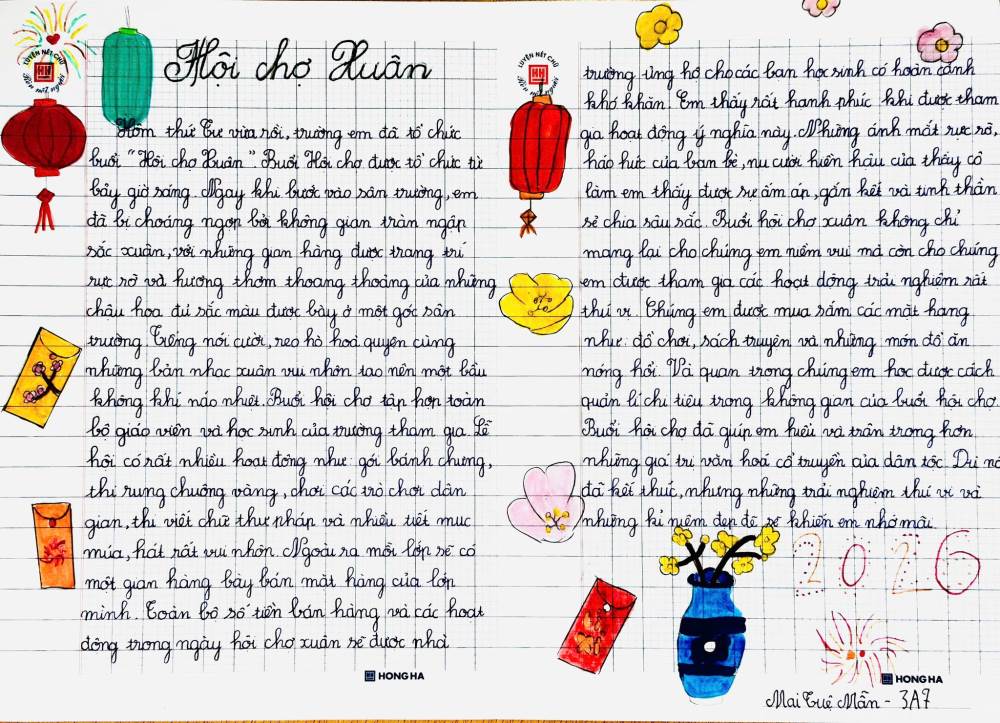 LUYỆN NÉT CHỮ
RÈN NẾT NGƯỜI
Hội chợ Xuân
Hôm thứ Tư vừa rồi, trường em đã tổ chức
buổi "Hội chợ Xuân" Buổi Hội chợ được tổ chức từ
bảy giờ sáng. Ngay khi bước vào sân trường, em
đã bị choáng ngợp bởi không gian tràn ngập
sắc xuân, với những gian hàng được trang trí
rực rỡ và hương thơm thoang thoảng của những
chậu hoa đủ sắc màu được bày ở một góc sân
trường. Tiếng nói cười, reo hò hoà quyện cùng
những bản nhạc xuân vui nhộn tạo nên một bầu
không khí náo nhiệt. Buổi hội chợ tập hợp toàn
bộ giáo viên và học sinh của trường tham gia. Lễ
hội có rất nhiều hoạt động như: gói bánh chưng,
thi rung chuông vàng, chơi các trò chơi dân
gian, thi viết chữ thư pháp và nhiều tiết mục
múa, hát rất vui nhộn. Ngoài ra mỗi lớp sẽ có
một gian hàng bày bán mặt hàng của lớp
mình. Toàn bộ số tiền bán hàng và các hoạt
động trong ngày hội chợ xuân sẽ được nhà
HONG HA
LUYỆN NÉT CHỮ
RÈN NẾT NGƯỜI
trường ủng hộ cho các bạn học sinh có hoàn cảnh
khó khăn. Em thấy rất hạnh phúc khi được tham
gia hoạt động ý nghĩa này. Những ánh mắt rực rỡ,
háo hức của bạn bè, nụ cười hiền hậu của thầy cô
làm em thấy được sự ấm áp, gắn kết và tinh thần
sẻ chia sâu sắc. Buổi hội chợ xuân không chỉ
mang lại cho chúng em niềm vui mà còn cho chúng
em được tham gia các hoạt động trải nghiệm rất
thú vị. Chúng em được mua sắm các mặt hàng
như: đồ chơi, sách truyện và những món đồ ăn
nóng hổi. Và quan trọng chúng em học được cách
quản lí chi tiêu trong không gian của buổi hội chợ.
Buổi hội chợ đã giúp em hiểu và trân trọng hơn
những giá trị văn hoá cổ truyền của dân tộc. Dù nó
đã kết thúc, nhưng những trải nghiệm thú vị và
những kỉ niệm đẹp đẽ sẽ khiến em nhớ mãi.
2026
HONG HA
Mai Tuệ Mẫn - 3A7